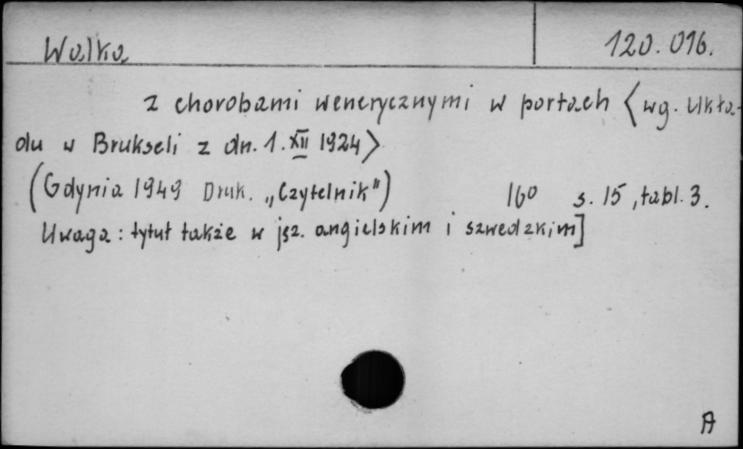 Walka 120.016.
z chorobami wenerycznymi w portach <wg. Ukła-
du w Brukseli z dn. 1. XII 1924>
(Gdynia 1949 Druk. „Czytelnik") 16° s. 15, tabl. 3.
Uwaga: tytuł także w jęz. angielskim i szwedzkim]
A